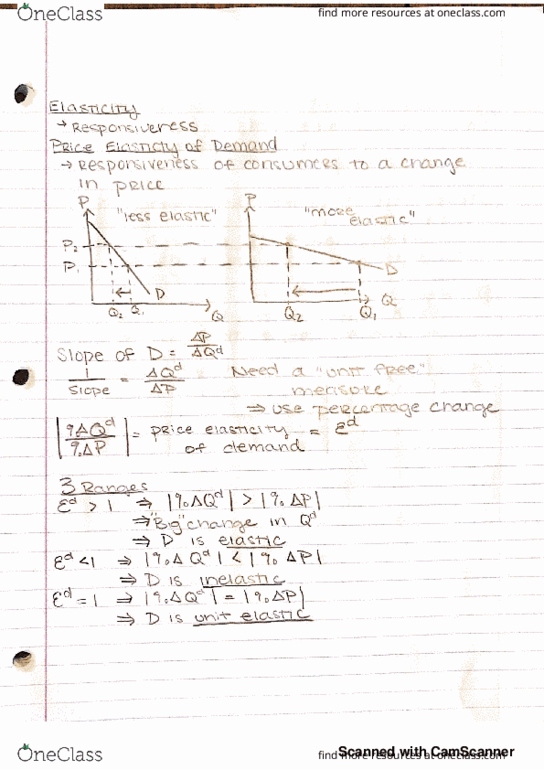 OneClass
find more resources at oneclass.com
Elasticity
→ Responsiveness
Price Elasticty of Demand
→ Responsiveness of consumers to a change
in price
P
"less elastic"
P
"more
elastic"
P₂
P₁
D
D
Q₂ Q₁
Q
Q₂
Q₁
Q
Slope of D = ΔP/ΔQᵈ
1/Slope = ΔQᵈ/ΔP
Need a "unit free"
measure
⇒ use percentage change
|%ΔQᵈ/%ΔP| = price elasticity = Ɛᵈ
of demand
3 Ranges
Ɛᵈ > 1 ⇒ |%ΔQᵈ| > |%ΔP|
⇒ "Big" change in Qᵈ
⇒ D is elastic
Ɛᵈ < 1 ⇒ |%ΔQᵈ| < |%ΔP|
⇒ D is inelastic
Ɛᵈ = 1 ⇒ |%ΔQᵈ| = |%ΔP|
⇒ D is unit elastic
OneClass
find more resources at oneclass.com
Scanned with CamScanner